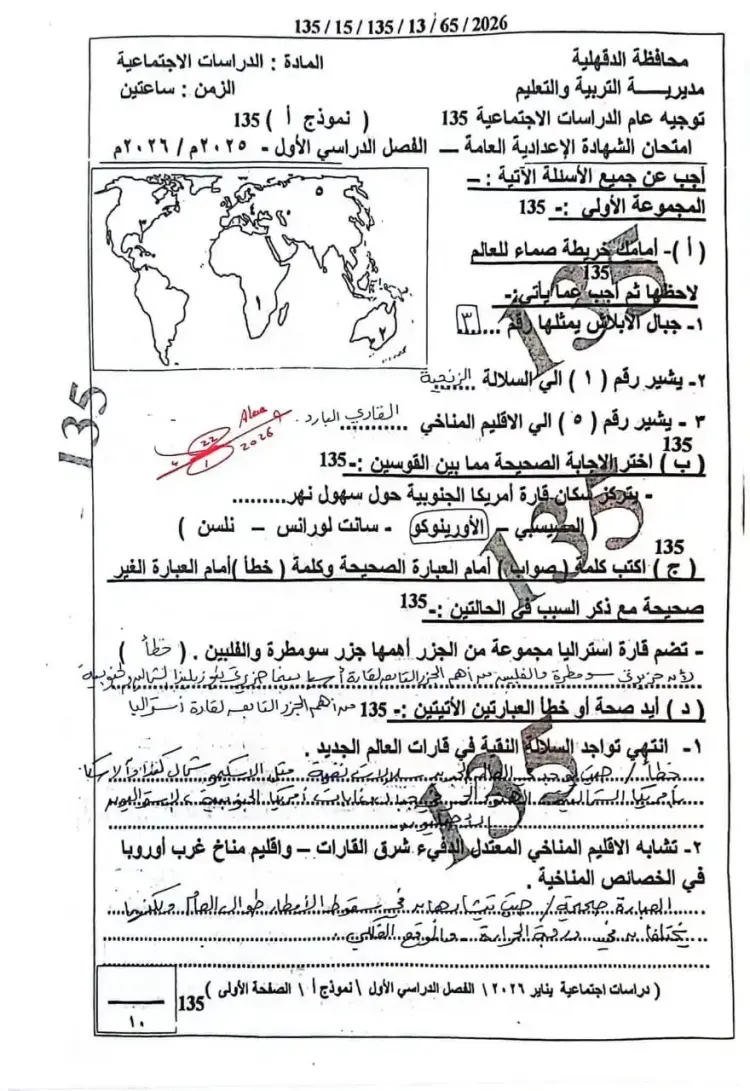 135 / 15 / 135 / 13 / 65 / 2026
محافظة الدقهلية
المادة : الدراسات الاجتماعية
مديريـــــة التربية والتعليم
الزمن : ساعتين
توجيه عام الدراسات الاجتماعية 135
( نموذج أ ) 135
امتحان الشهادة الإعدادية العامة – الفصل الدراسي الأول - ٢٠٢٥م / ٢٠٢٦م
أجب عن جميع الأسئلة الآتية : –
المجموعة الأولى :- 135
( أ )- أمامك خريطة صماء للعالم
135
لاحظها ثم أجب عما يأتي:-
١- جبال الأبلاش يمثلها رقم ...٣...
٥
٤
٣
١
٢
٢- يشير رقم ( ١ ) الي السلالة الزنجية
٣ - يشير رقم ( ٥ ) الي الاقليم المناخي القاري البارد
22
1
2026
135
135
( ب ) اختر الاجابة الصحيحة مما بين القوسين :- 135
- يتركز سكان قارة أمريكا الجنوبية حول سهول نهر..........
( المسيسبي – الأورينوكو - سانت لورانس – نلسن )
135
( ج ) اكتب كلمة ( صواب ) أمام العبارة الصحيحة وكلمة ( خطأ )أمام العبارة الغير
صحيحة مع ذكر السبب في الحالتين :- 135
- تضم قارة استراليا مجموعة من الجزر أهمها جزر سومطرة والفلبين . ( خطأ )
سومطرة والفلبين من أهم الجزر التابعة لقارة آسيا بينما
من أهم الجزر التابعة لقارة أستراليا
( د ) أيد صحة أو خطأ العبارتين الأتيتين :- 135
١- انتهي تواجد السلالة النقية في قارات العالم الجديد .
خطأ / حيث يوجد في العالم الجديد سلالات نقية مثل الاسكيمو شمال كندا وألاسكا
بأمريكا الشمالية غابات أمريكا الجنوبية
٢- تشابه الاقليم المناخي المعتدل الدفيء شرق القارات – واقليم مناخ غرب أوروبا
في الخصائص المناخية .
العبارة صحيحة / حيث يتشابهان في سقوط الأمطار طوال العام ولكنهما
يختلفان في درجة الحرارة والموقع الفلكي
135
135
135
135
( دراسات اجتماعية يناير ٢٠٢٦ \ الفصل الدراسي الأول \ نموذج أ \ الصفحة الأولى ) 135
١٠